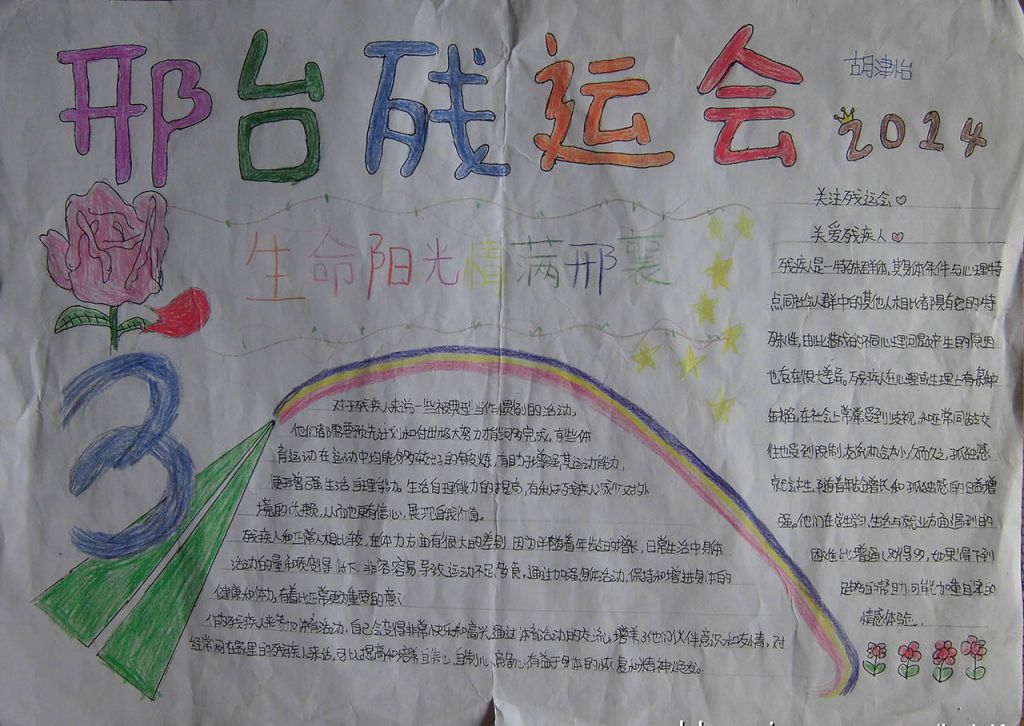 邢台残运会
胡津怡
2014
生命阳光情满邢襄
3
对于残疾人来说一些被典型当作惯例的活动,
他们都需要预先计划和付出极大努力才能够完成,有些体
育运动在运动中均能够较好的锻炼,有助于增强其运动能力,
便于增强生活自理能力。生活自理能力的提高,有利于残疾人减少对外
境的依赖,从而也更有信心,展现自我价值。
残疾人和正常人相比较,在体力方面有很大的差别,因为伴随着年龄的增长,日常生活中身体
活动的量和质变得低下,非常容易导致运动不足多食,通过加强身体活动,保持和增进身体的
健康和体力,有着比正常更为重要的意义
作为残疾人来参加体育活动,自己会变得非常快乐和高兴,通过体育活动的交流,培养了他们伙伴意识和友情,对
经常闷在家里的残疾人来说,可以提高和培养自信心,自制心,有益于身体的恢复和精神焕发。
关注残运会
关爱残疾人
残疾人是一特殊群体,其身体条件与心理特
点同社会人群中的其他人相比都具有它的特
殊性,由此造成的不同心理问题产生的原因
也存在很大差异。残疾人在心理或生理上有某种
缺陷,在社会上常常受到歧视,和正常同龄交
往也受到限制,交流机会太小,久而久之,孤独感
就会产生,随着年龄增长和孤独感的日益增
强。他们在学生学习,生活与就业方面遇到的
困难比普通人对得多,如果得不到
足够的帮助,可能加重自卑的
情感体验。